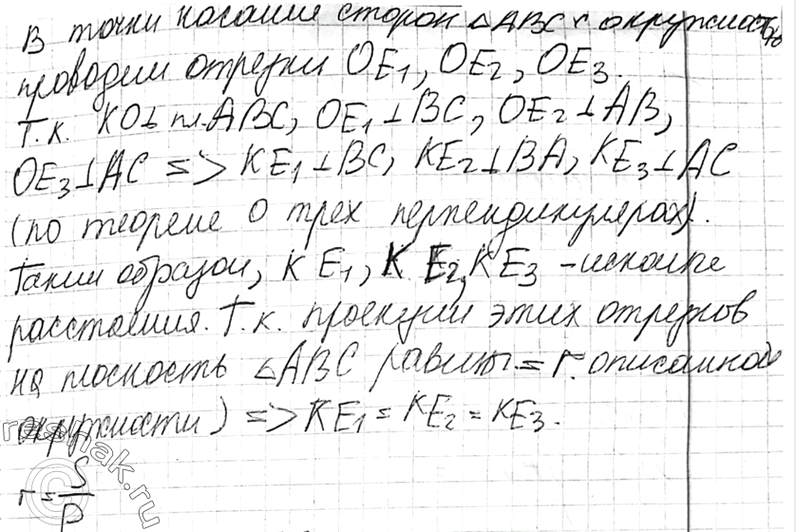 В точки касание сторон △ABC с окружностью
проводем отрезки OE₁, OE₂, OE₃.
Т.к. KO⊥ пл.ABC, OE₁⊥BC, OE₂⊥AB,
OE₃⊥AC => KE₁⊥BC, KE₂⊥BA, KE₃⊥AC
(по теореме о трех перпендикулерах).
Таким образом, KE₁, KE₂, KE₃ - искомые
расстояния. Т.к. проекции этих отрезков
на плоскость △ABC равны = r. описанной
окружности) => KE₁ = KE₂ = KE₃.
r = S/p
©reshak.ru